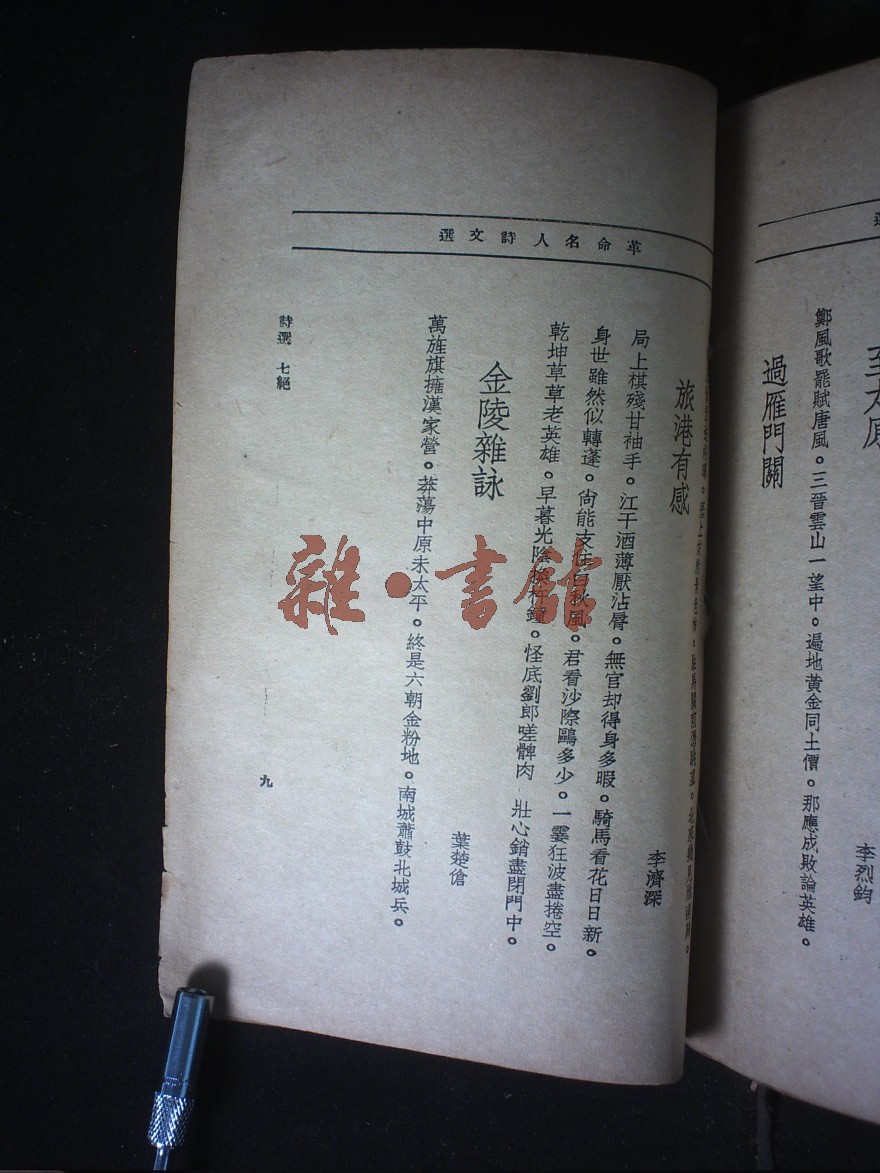 至太原
李烈鈞
鄭風歌罷賦唐風。三晉雲山一望中。遍地黃金同土價。那應成敗論英雄。
過雁門關
革命名人詩文選
旅港有感
李濟深
局上棋殘甘袖手。江干酒薄厭沾脣。無官却得身多暇。騎馬看花日日新。
身世雖然似轉蓬。尙能支住白秋風。君看沙際鷗多少。一霎狂波盡捲空。
乾坤草草老英雄。早暮光陰杵鐘。怪底劉郎嗟髀肉 壯心銷盡閉門中。
金陵雜詠
葉楚傖
萬旌旗擁漢家營。莽蕩中原未太平。終是六朝金粉地。南城蕭鼓北城兵。
詩選 七絕
九
雜·書館